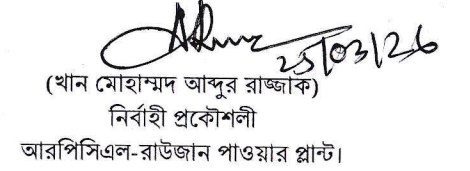 25/03/26
(খান মোহাম্মদ আব্দুর রাজ্জাক)
নির্বাহী প্রকৌশলী
আরপিসিএল-রাউজান পাওয়ার প্লান্ট।